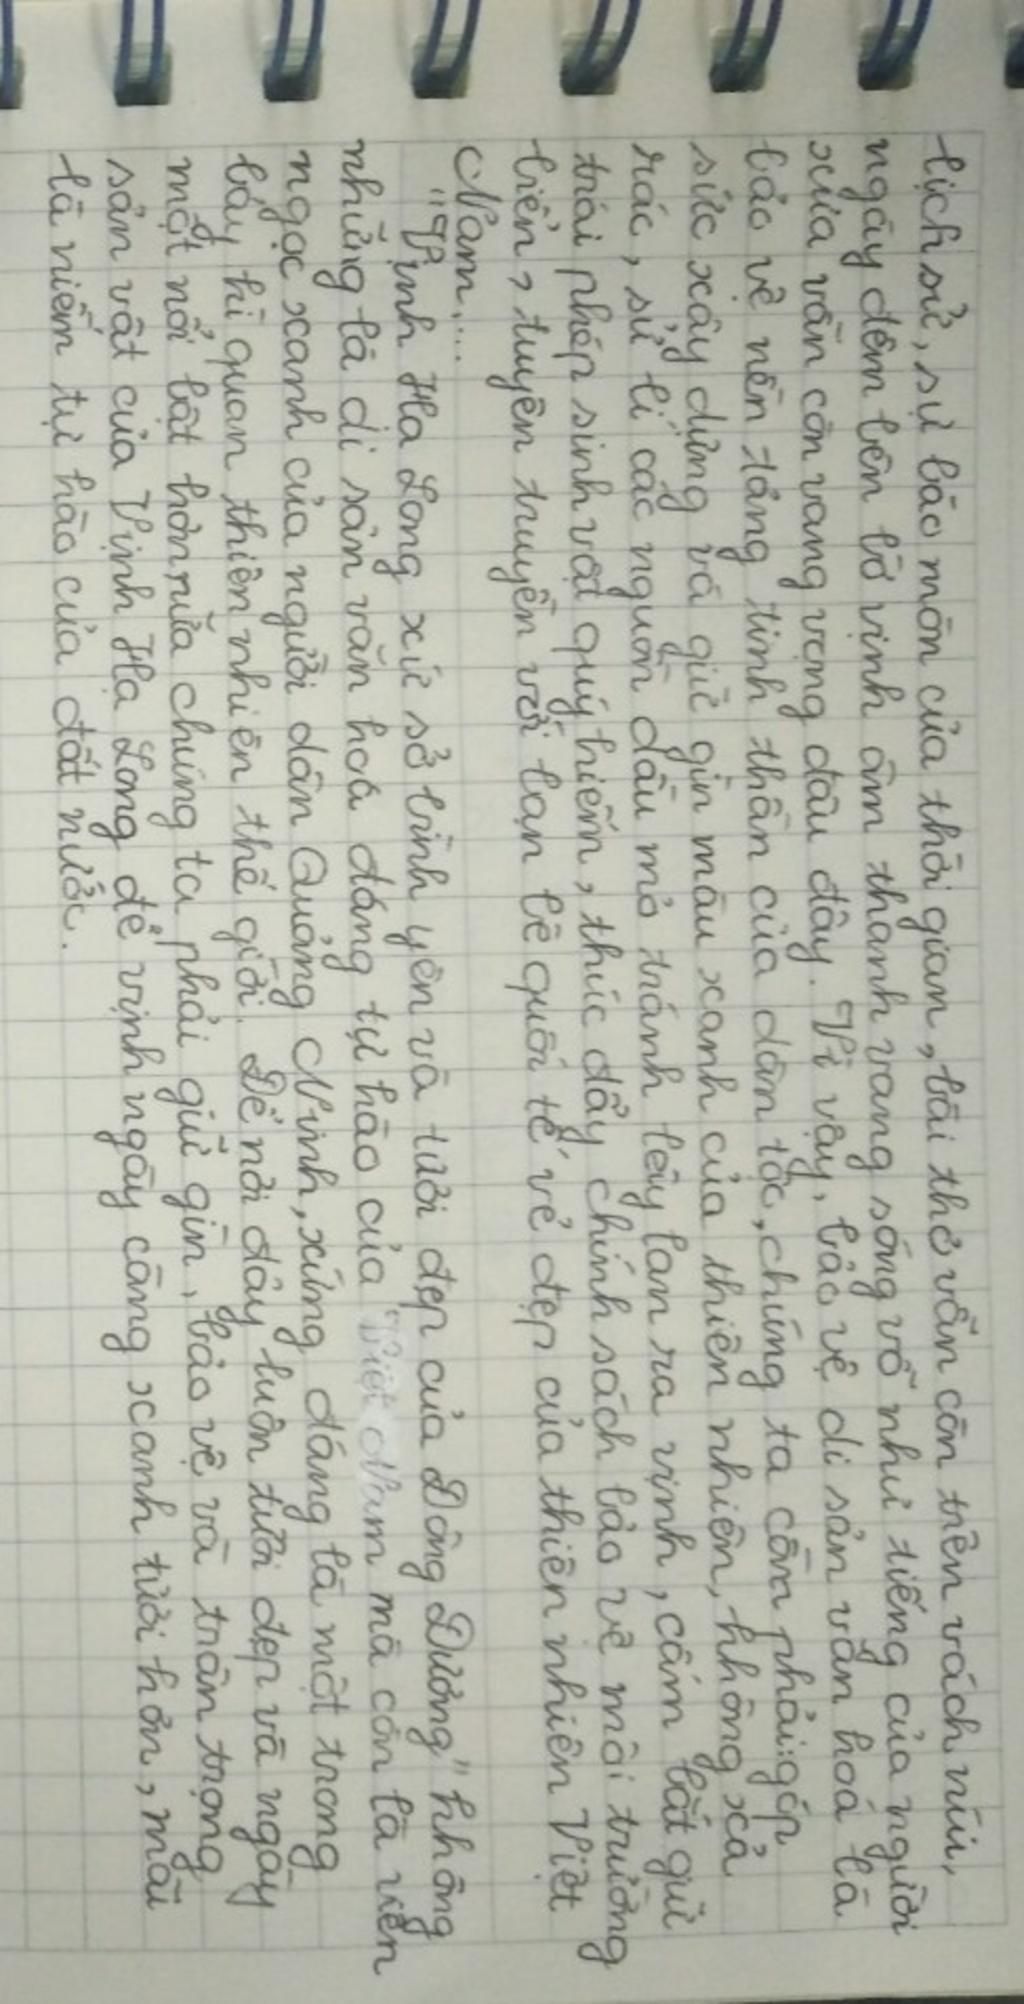 lịch sử, sự bào mòn của thời gian, bài thơ vẫn còn trên vách núi,
ngày đêm bên bờ vịnh âm thanh vang sóng vỗ như tiếng của người
xưa vẫn còn vang vọng đâu đây. Vì vậy, bảo vệ di sản văn hoá là
bảo vệ nền tảng tinh thần của dân tộc, chúng ta cần phải: góp
sức xây dựng và giữ gìn màu xanh của thiên nhiên, không xả
rác, sử lí các nguồn dầu mỏ tránh lây lan ra vịnh, cấm bắt giữ
trái phép sinh vật quý hiếm, thúc đẩy chính sách bảo vệ môi trường
biển, tuyên truyền với bạn bè quốc tế vẻ đẹp của thiên nhiên Việt
Nam,...
"Vịnh Hạ Long xứ sở bình yên và tươi đẹp của Đông Dương" không
những là di sản văn hoá đáng tự hào của Việt Nam mà còn là viên
ngọc xanh của người dân Quảng Ninh, xứng đáng là một trong
bảy kì quan thiên nhiên thế giới. Để nơi đây luôn tươi đẹp và ngày
một nổi bật hơn nữa chúng ta phải giữ gìn, bảo vệ và trân trọng
sản vật của Vịnh Hạ Long để vịnh ngày càng xanh tươi hơn, mãi
là niềm tự hào của đất nước.